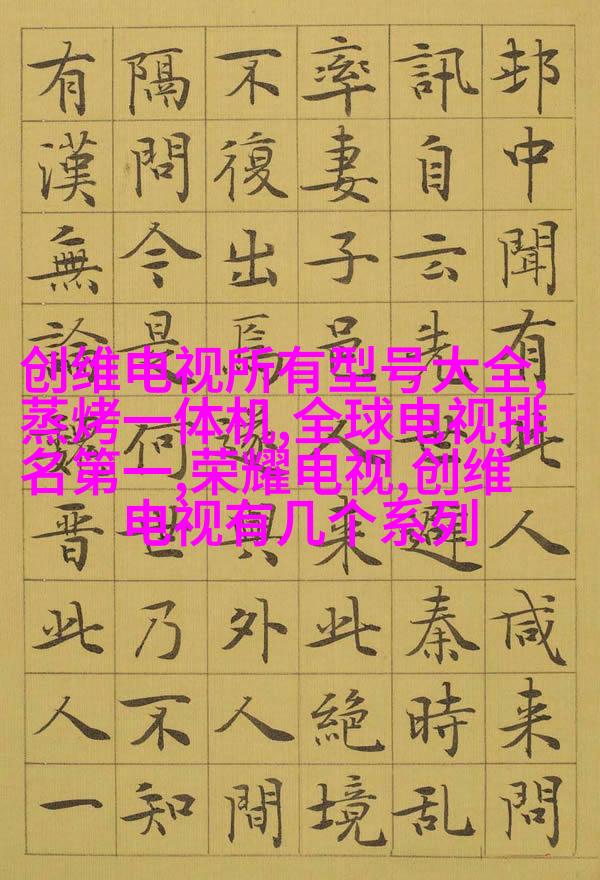 创维电视所有型号大全,
蒸烤一体机,全球电视排
名第一,荣耀电视,创维
电视有几个系列
邨中聞有此人咸来問
訊自云先世避秦時乱
率妻子邑人来此絶境
不復出焉遂與外人間
隔問今是何世乃不知
有漢無論魏晋此人一